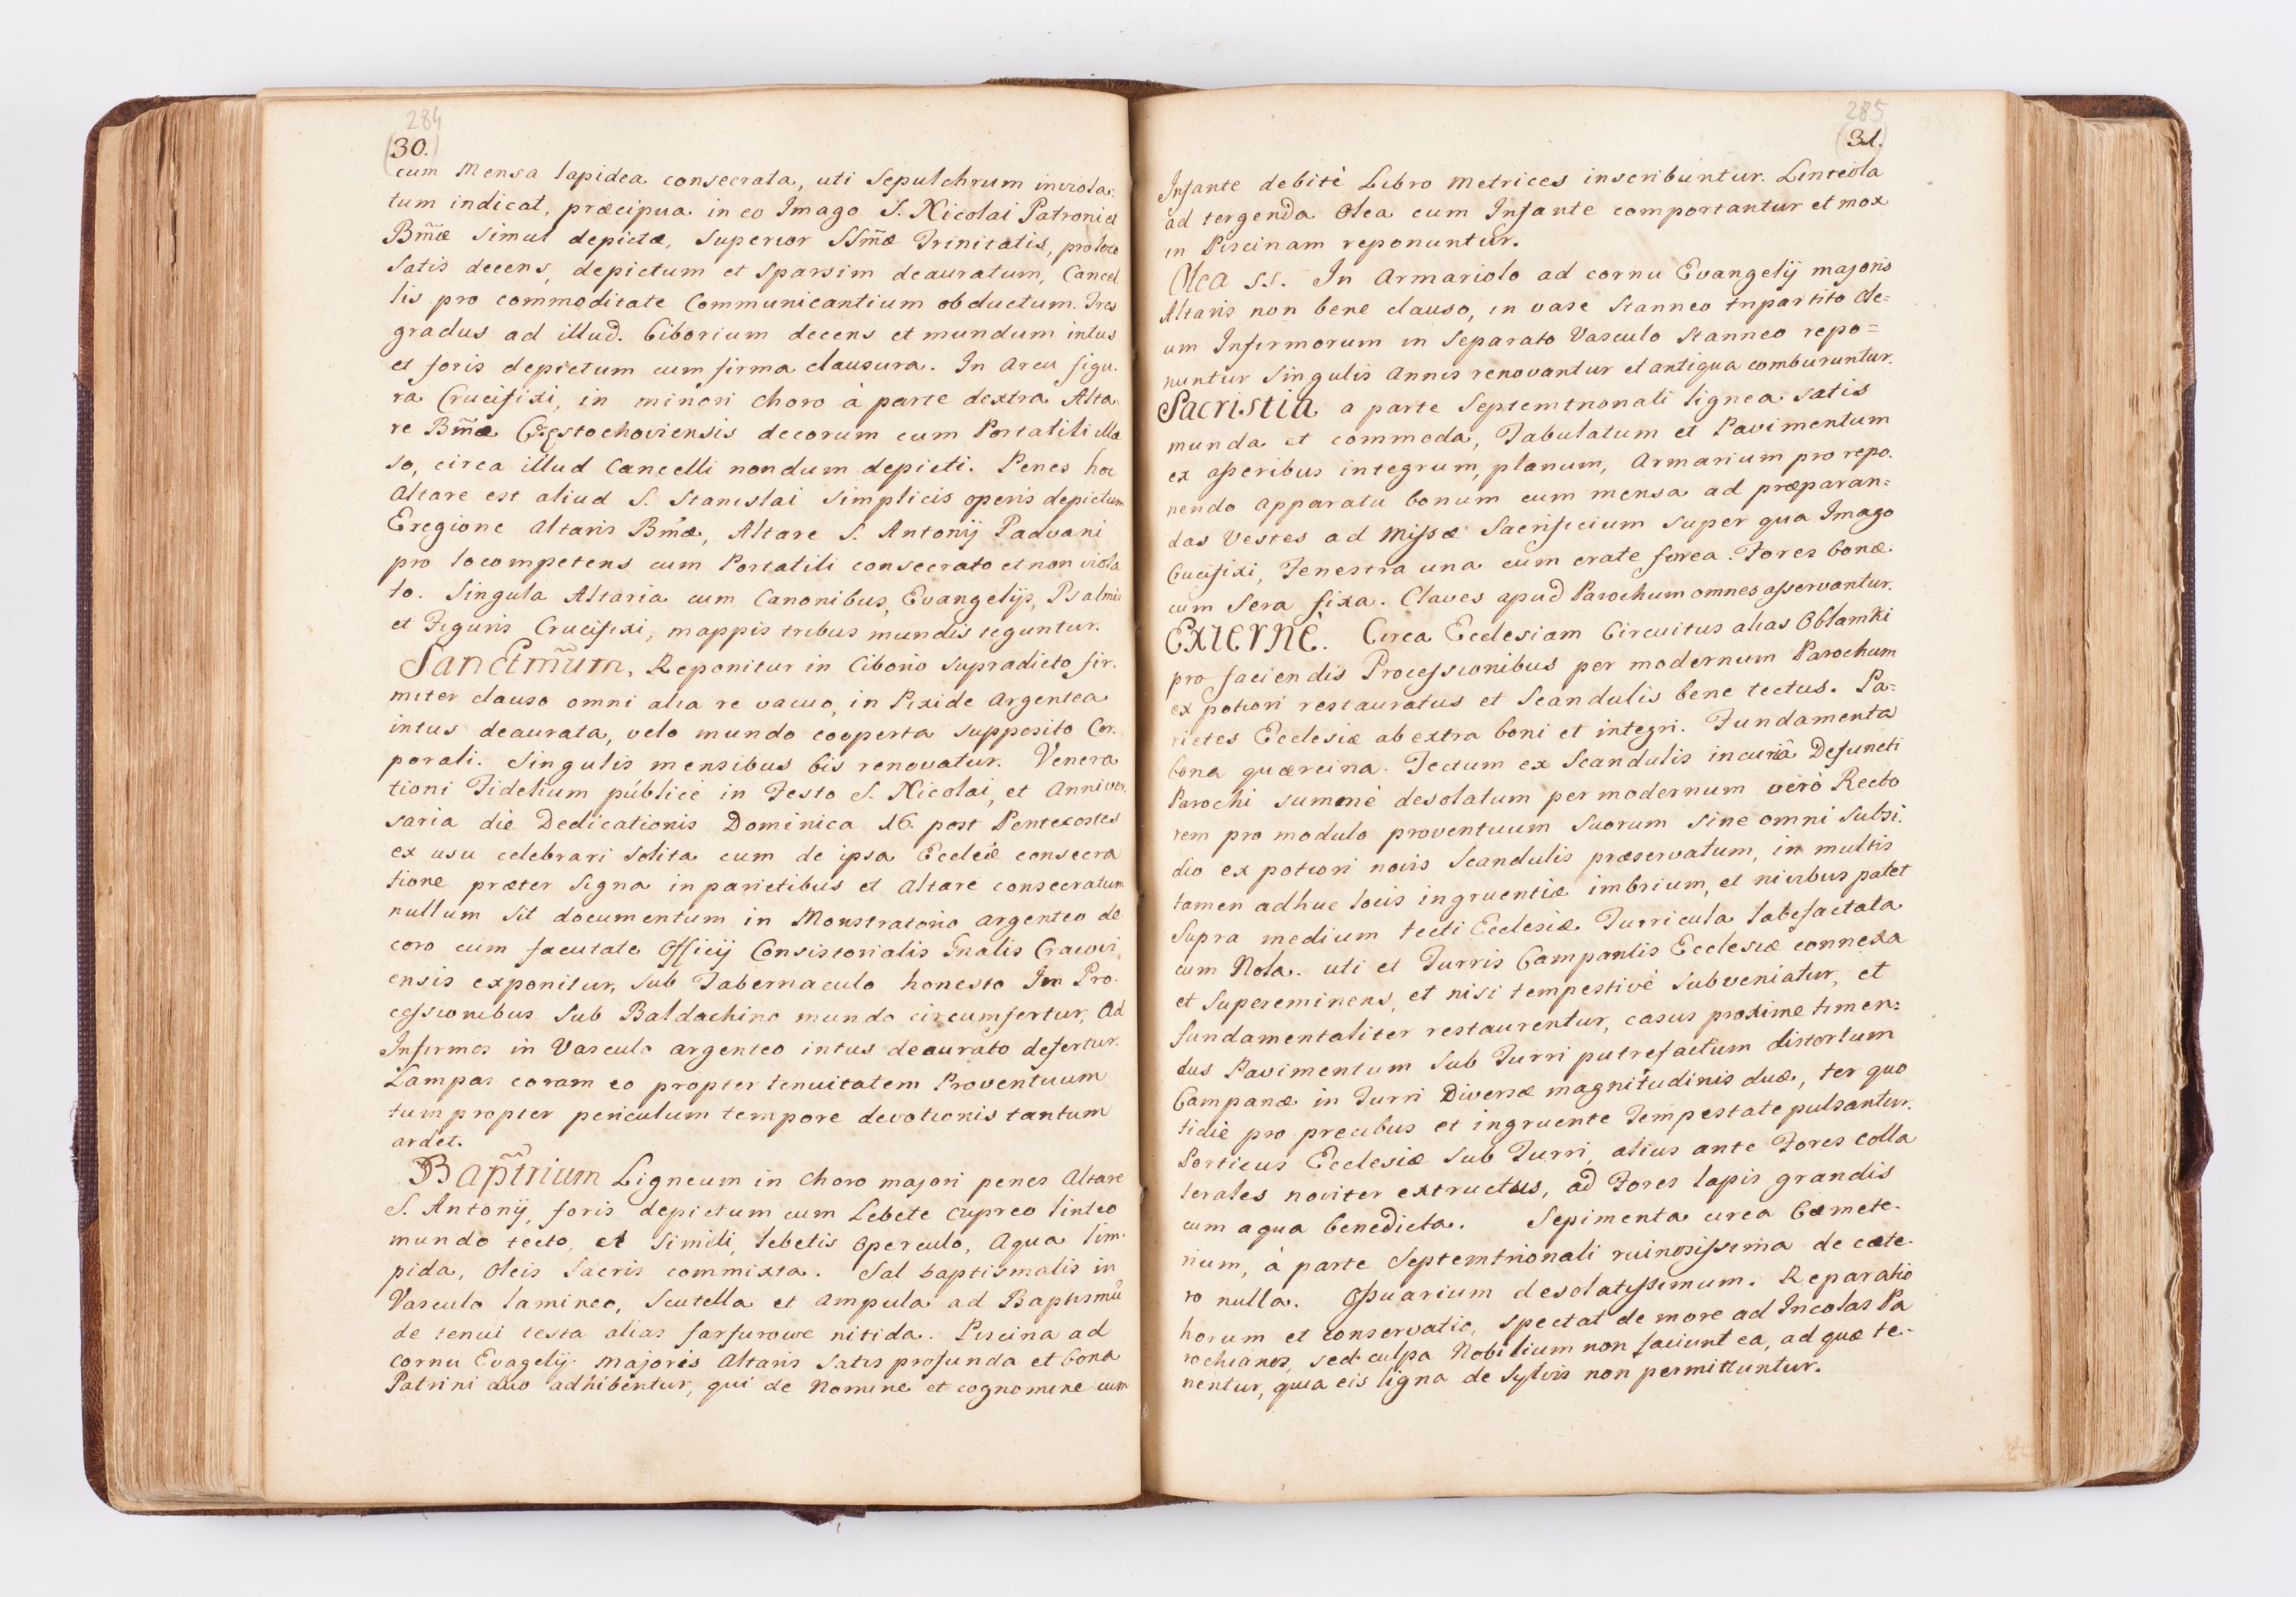 284
(30.)
cum Mensa lapidea consecrata, uti Sepulchrum inviola:
tum indicat, præcipua in eo Imago S. Nicolai Patroni et
Bm̃æ simul depictæ, Superior SSm̃æ Trinitatis, pro loco
Satis decens, depictum et Sparsim deauratum, Cancel
lis pro commoditate Communicantium obductum. Tres
gradus ad illud. Ciborium decens et mundum intus
et foris depictum cum firma clausura. In Arcu figu.
ra Crucifixi, in minori Choro à parte dextra Alta
re Bm̃æ Częstochoviensis decorum cum Portatili illæ
so, circa illud Cancelli nondum depicti. Penes hoc
Altare est aliud S. Stanislai Simplicis operis depictum
Eregione Altaris Bm̃æ, Altare S. Antonij Padvani
pro loco competens cum Portatili consecrato et non viola
to. Singula Altaria cum Canonibus, Evangelijs, Psalmis
et Figuris Crucifixi, mappis tribus mundis teguntur.
Sanctm̃um, Reponitur in Ciborio supradicto fir.
miter clauso omni alia re vacuo, in Pixide Argentea
intus deaurata, velo mundo cooperta supposito Cor.
porali. Singulis mensibus bis renovatur. Venera
tioni Fidelium públicè in Festo S. Nicolai, et Anniver.
saria die Dedicationis Dominica 16. post Pentecostes
ex usu celebrari Solita cum de ipsa Eccleiæ consecra
tione præter Signa in parietibus et Altare consecratum
nullum sit documentum in Monstratorio argenteo de
coro cum facultate Officij Consistorialis Gnalis Cracovi
ensis exponitur, sub Tabernaculo honesto In Pro.
cessionibus Sub Baldachino mundo circumfertur, Ad
Infirmos in Vasculo argenteo intus deaurato defertur.
Lampas coram eo propter tenuitatem Proventuum
tum propter periculum tempore devotionis tantum
ardet.
Bapt̃rium Ligneum in Choro majori penes Altare
S. Antonij, foris depictum cum Lebete cupreo linteo
mundo tecto, et Simili lebetis Operculo, Aqua lim.
pida, Oleis Sacris commixta. Sal baptismalis in
Vasculo lamineo, Scutella et Ampula ad Baptismũ
de tenui testa alias farfurowe nitida. Piscina ad
Cornu Evagelij Majoris Altaris satis profunda et bona
Patrini duo adhibentur, qui de Nomine et cognomine cum
285
(31.)
Infante debitè Libro Metrices inscribuntur. Linteola
ad tergenda Olea cum Infante comportantur et mox
in Piscinam reponuntur.
Olea S.S. In Armariolo ad cornu Evangelij majoris
Altaris non bene clauso, in vase Stanneo tripartito Ole=
um Infirmorum in Separato Vasculo Stanneo repo=
nuntur Singulis Annis renovantur et antiqua comburuntur.
Sacristia a parte Septemtrionali lignea satis
munda et commoda, Tabulatum et Pavimentum
ex asseribus integrum, planum, Armarium pro repo.
nendo Apparatu bonum cum mensa ad præparan=
das Vestes ad Missæ Sacrificium super qua Imago
Crucifixi, Fenestra una cum crate ferea. Fores bonæ
cum Sera fixa. Claves apud Parochum omnes asservantur.
Externè. Circa Ecclesiam Circuitus alias Oblamki
pro faciendis Processionibus per modernum Parochum
ex potiori restauratus et Scandulis bene tectus. Pa=
rietes Ecclesiæ ab extra boni et integri. Fundamenta
bona quærcina. Tectum ex Scandulis incuriâ Defuncti
Parochi summè desolatum per modernum verò Recto
rem pro modulo proventuum Suorum sine omni Subsi.
dio ex potiori novis Scandulis præservatum, in multis
tamen adhuc locis ingruentiæ imbrium, et nivibus patet
Supra medium tecti Ecclesiæ Turricula labefactata
cum Nola. uti et Turris Campanilis Ecclesiæ connexa
et Supereminens, et nisi tempestivè Subveniatur, et
fundamentaliter restaurentur, casus proxime timen=
dus Pavimentum Sub Turri putrefactum distortum
Campanæ in Turri Diversæ magnitudinis duæ, ter quo
tidiè pro precibus et ingruente Tempestate pulsantur.
Porticus Ecclesiæ Sub Turri, alius ante Fores colla
terales noviter extructus, ad Fores lapis grandis
cum aqua benedicta. Sepimenta circa Cæmete.
rium, à parte Septemtrionali ruinosissima de cæte.
ro nulla. Ossuarium desolatissimum. Reparatio
horum et conservatio, spectat de more ad Incolas Pa
rochianos, sed culpa Nobilium non faciunt ea, ad quæ te.
nentur, quia eis ligna de Sylvis non permittuntur.